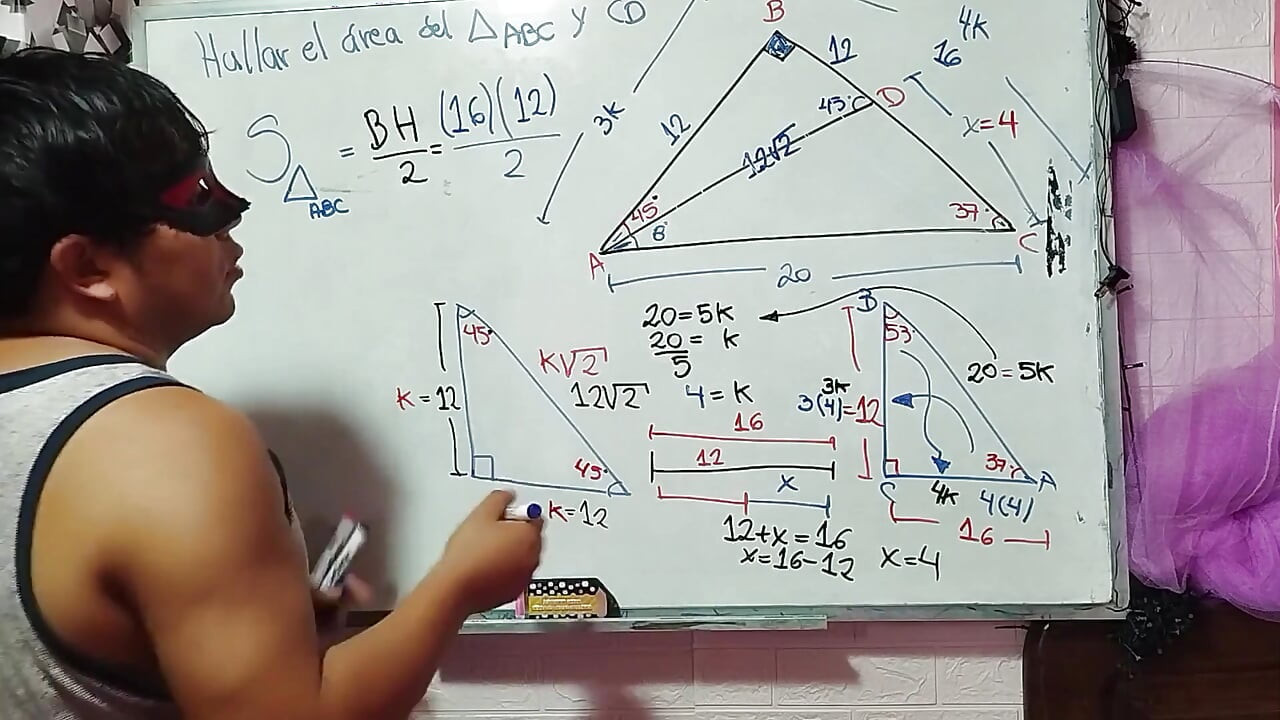 Hallar el área del △ABC y CD
S△ABC = BH/2 = (16)(12)/2
B
12
4K
16
3K
12
45°
D
x=4
12√2
45°
θ
37°
A
C
20
45°
K√2
12√2
K=12
45°
K=12
20=5K
20/5 = K
4=K
16
12
x
12+x=16
x=16-12
x=4
B
53°
20=5K
3K
3(4)=12
37°
C
A
4K
4(4)
16